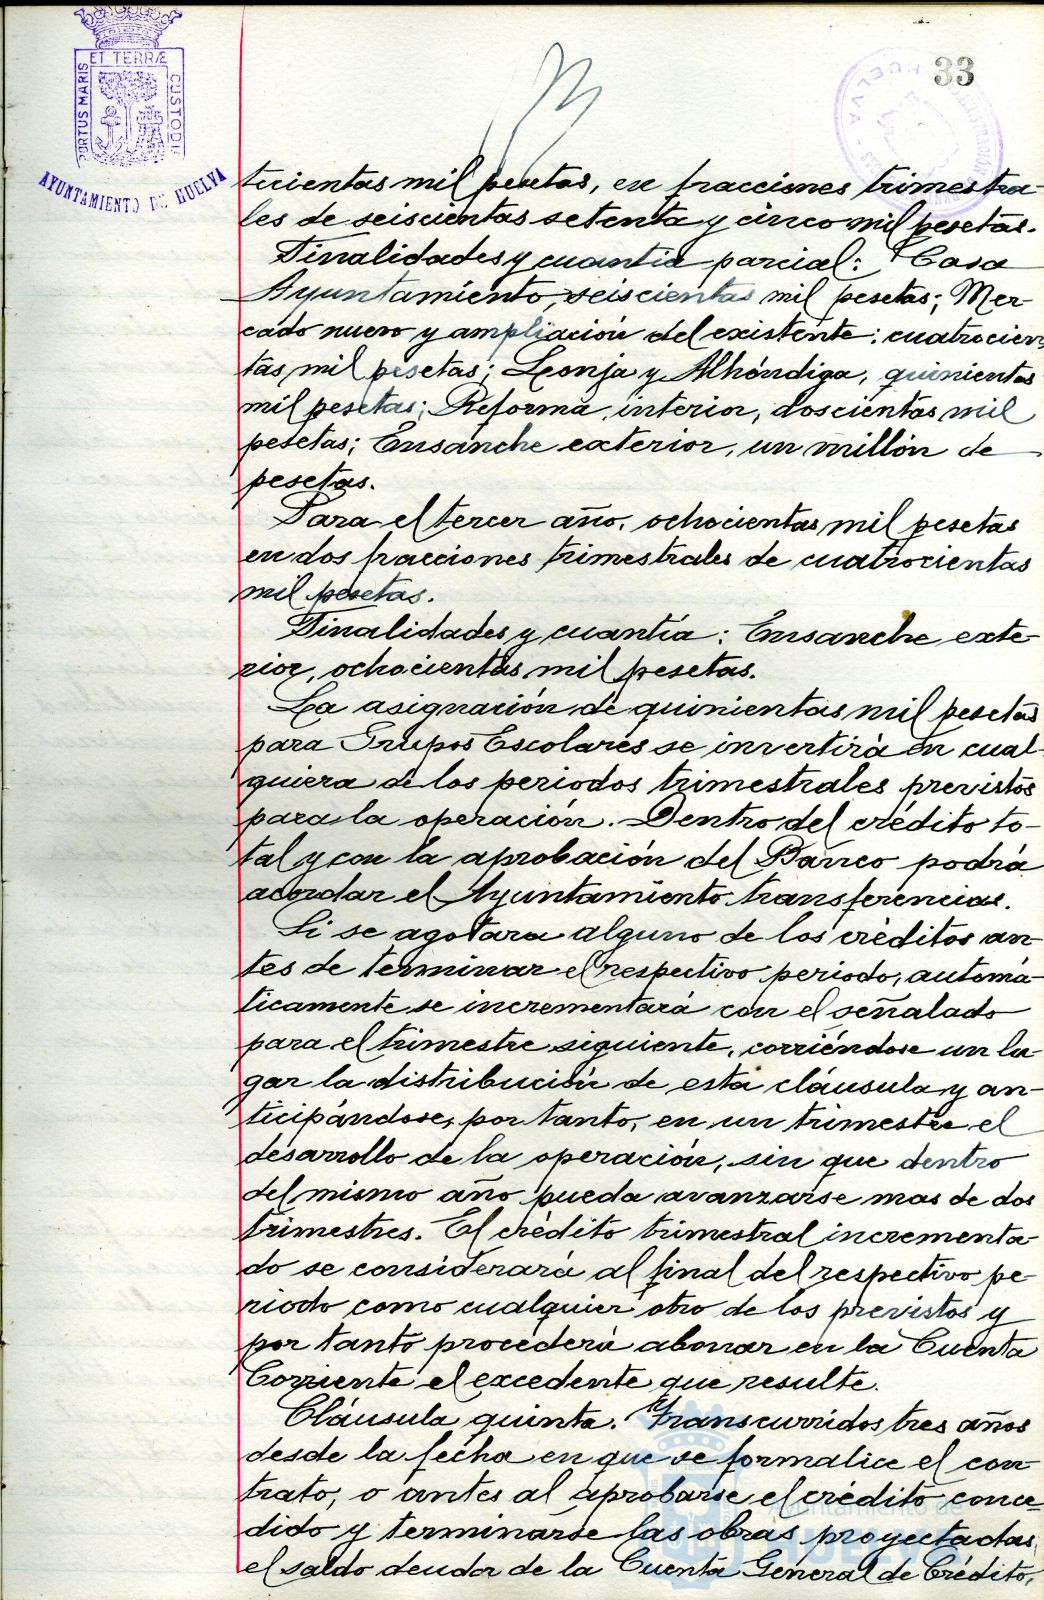 33
ET TERRÆ
PORTUS MARIS
CUSTODI
AYUNTAMIENTO DE HUELVA
HUELVA
tecientas mil pesetas, en fracciones trimestra-
les de seiscientas setenta y cinco mil pesetas.
Finalidades y cuantia parcial: Casa
Ayuntamiento, seiscientas mil pesetas; Mer-
cado nuevo y ampliación del existente: cuatrocien
tas mil pesetas; Lonja y Alhóndiga, quinientas
mil pesetas; Reforma interior, doscientas mil
pesetas; Ensanche exterior, un millón de
pesetas.
Para el tercer año, ochocientas mil pesetas
en dos fracciones trimestrales de cuatrocientas
mil pesetas.
Finalidades y cuantía: Ensanche exte-
rior, ochocientas mil pesetas.
La asignación de quinientas mil pesetas
para Grupos Escolares se invertirá en cual-
quiera de los periodos trimestrales previstos
para la operación. Dentro del crédito to-
tal y con la aprobación del Banco podrá
acordar el Ayuntamiento transferencias.
Si se agotara alguno de los créditos an-
tes de terminar el respectivo periodo, automá-
ticamente se incrementará con el señalado
para el trimestre siguiente, corriéndose un lu-
gar la distribución de esta cláusula y an-
ticipándose, por tanto, en un trimestre el
desarrollo de la operación, sin que dentro
del mismo año pueda avanzarse mas de dos
trimestres. El crédito trimestral incrementa-
do se considerará al final del respectivo pe-
riodo como cualquier otro de los previstos y
por tanto procederá abonar en la Cuenta
Corriente el excedente que resulte.
Cláusula quinta. Transcurridos tres años
desde la fecha en que se formalice el con-
trato, o antes al aprobarse el crédito conce-
dido y terminarse las obras proyectadas,
el saldo deudor de la Cuenta General de Crédito,
Ayuntamiento de
HUELVA